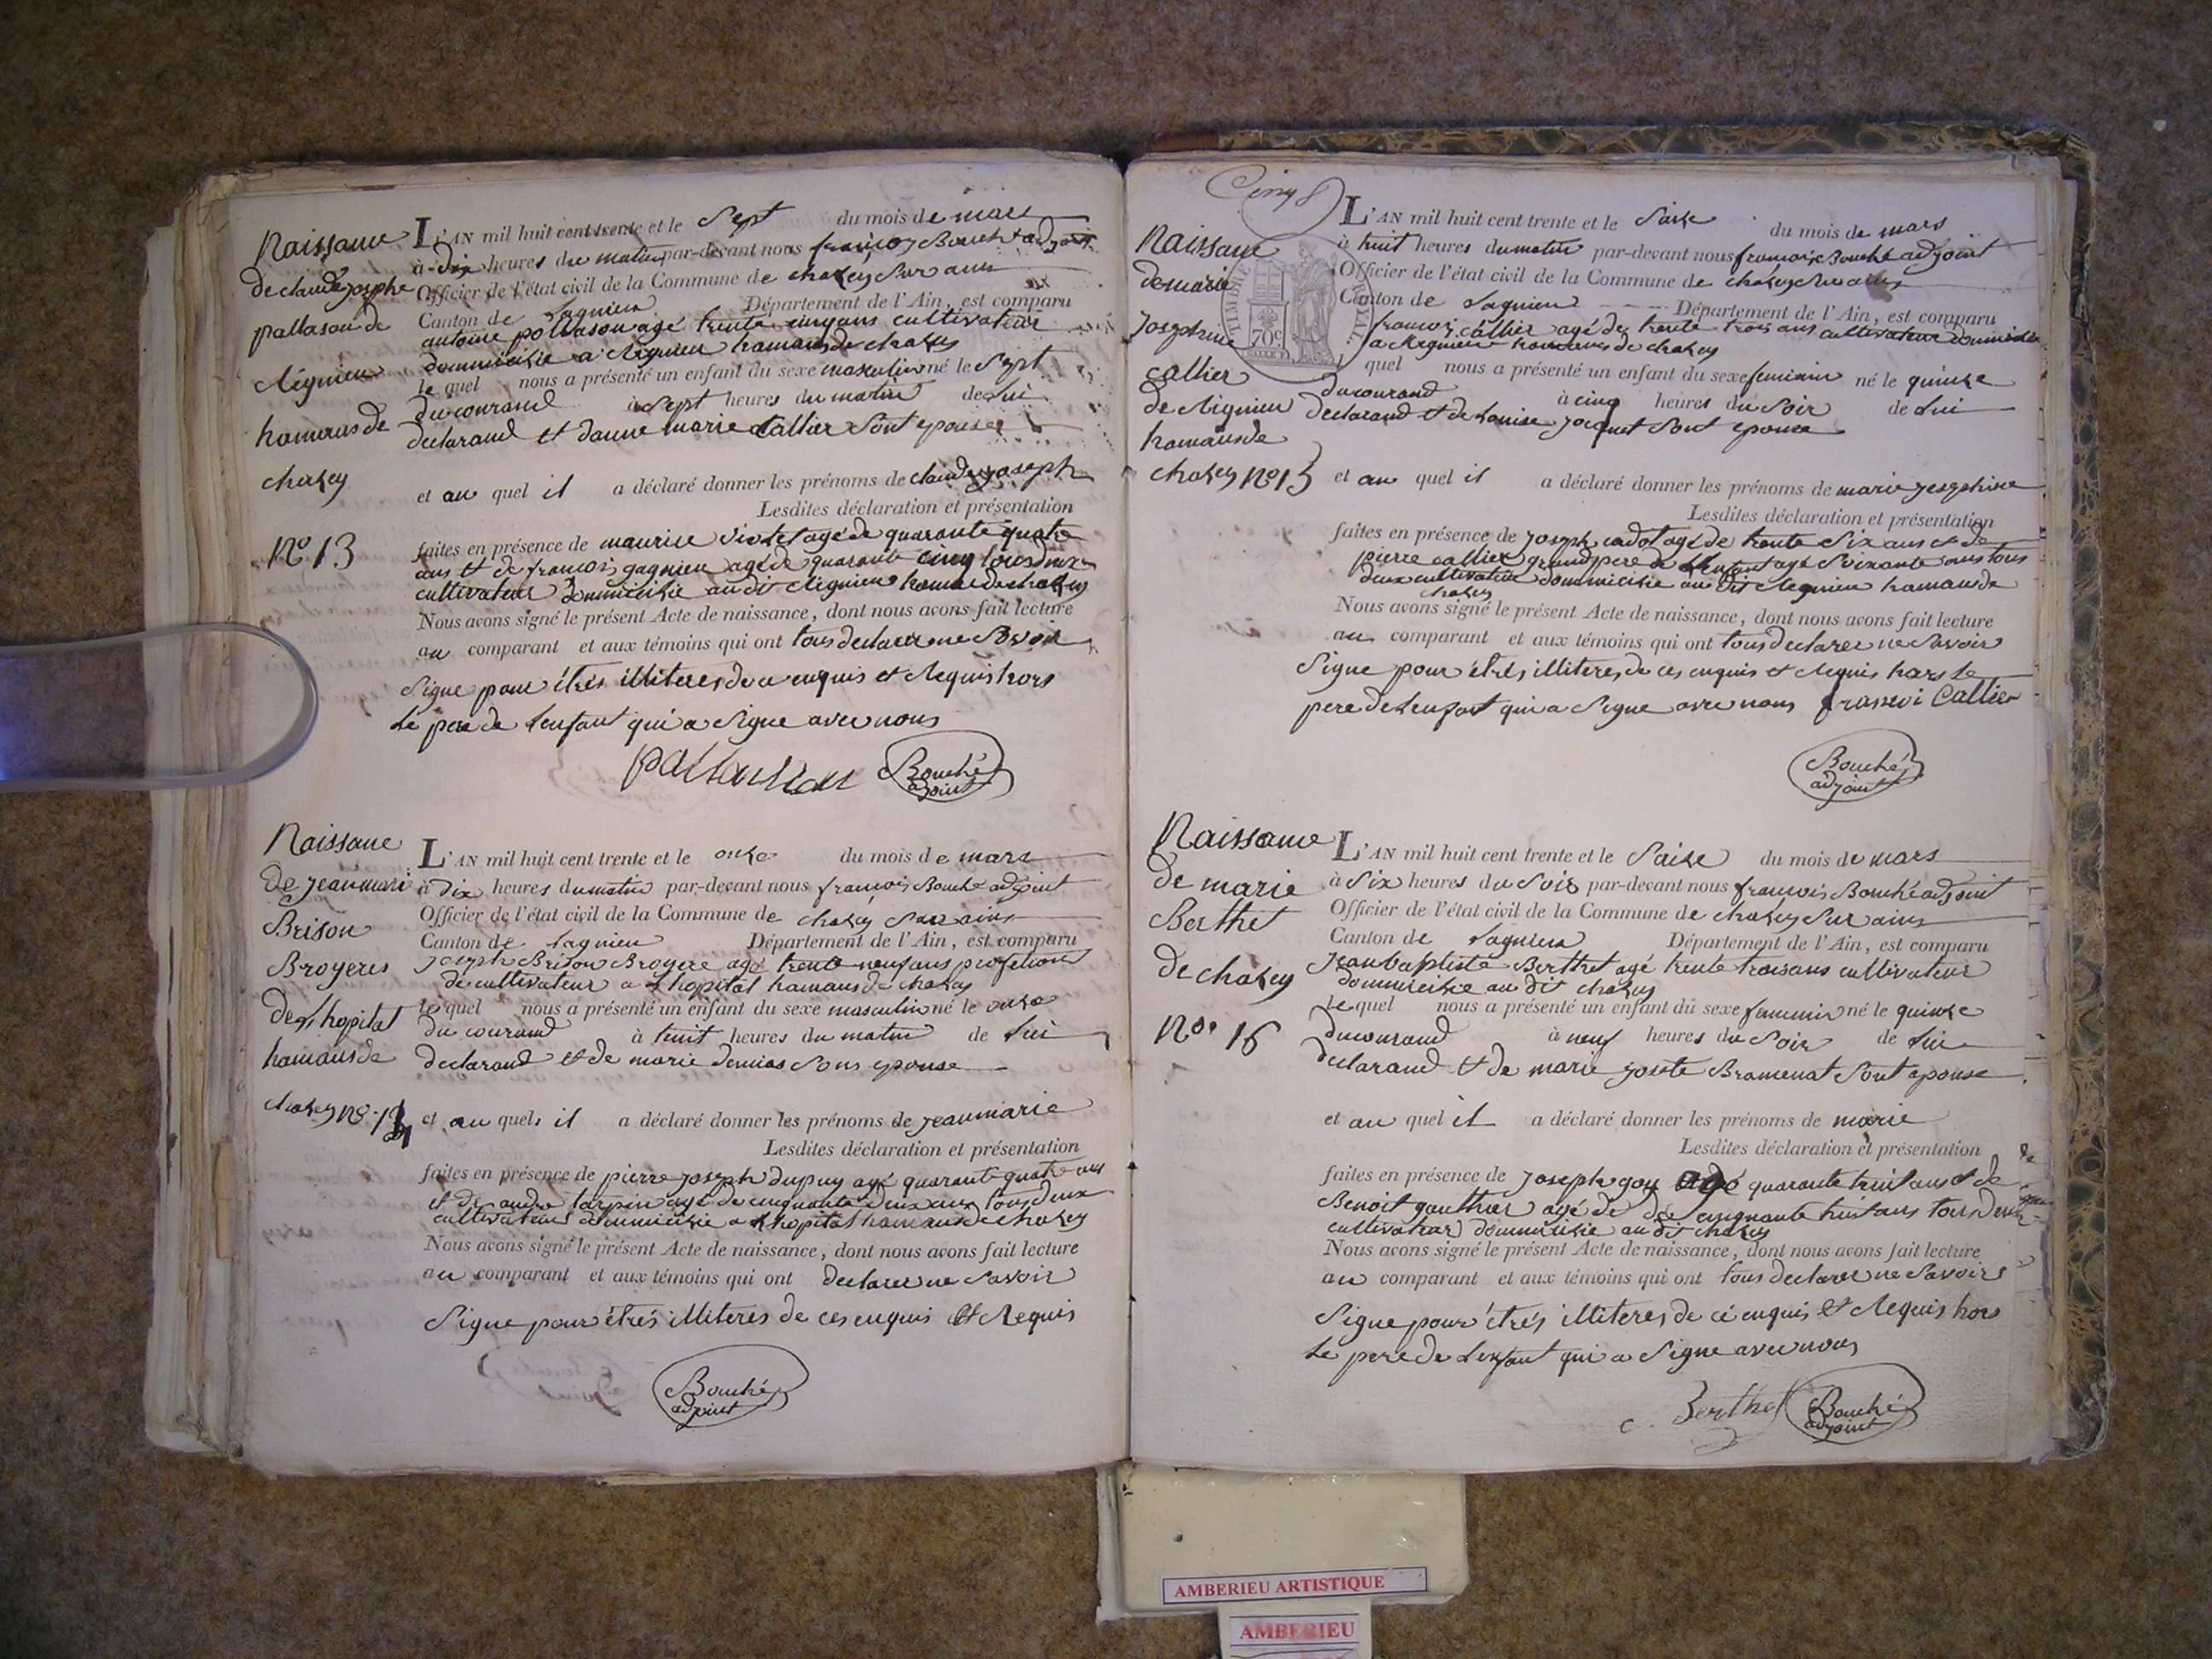 Naissance
de claude josephe
pallason de
Rignieu
hamaus de
chazey
N.o 13
L'AN mil huit cent trente et le Sept du mois de mars
à dix heures du matin par-devant nous françois Bouché adjoint
Officier de l'état civil de la Commune de chazey Sur ains
Canton de Lagnieu Département de l'Ain, est comparu
antoine pollason agé trente cinq ans cultivateur
dommicilie a Rignieu hamaus de chazey
le quel nous a présenté un enfant du sexe masculin né le Sept
du courand à Sept heures du matin de Lui
declarand et danne marie Callier Sont epouse
et au quel il a déclaré donner les prénoms de claude joseph
Lesdites déclaration et présentation
faites en présence de maurice violet agé de quarante quatre
ans et de francois gagnieu agé de quarante cinq tous deux
cultivateur dommicilie au dit Rignieu hamau de chazey
Nous avons signé le présent Acte de naissance, dont nous avons fait lecture
au comparant et aux témoins qui ont tous declarer ne Savoir
Signe pour étrés illiteres de ce enquis et Requis hors
Le pere de Lenfant qui a Signe avec nous
Bouché
adjoint
Naissance
de jean marie
Brison
Broyeres
de L hopital
hamaus de
chazey N.o
L'AN mil huit cent trente et le onze du mois de mars
à dix heures du matin par-devant nous francois Bouché adjoint
Officier de l'état civil de la Commune de chazey Sur ains
Canton de Lagnieu Département de l'Ain, est comparu
joseph Brison Broyere agé trente neuf ans profetion
de cultivateur a L hopital hamaus de chazey
le quel nous a présenté un enfant du sexe masculin né le onze
du courand à huit heures du matin de Lui
declarand et de marie Sons epouse
et au quel il a déclaré donner les prénoms de jean marie
Lesdites déclaration et présentation
faites en présence de pierre joseph dupuy agé quarante quatre ans
et de andre tarpin agé de cinquante deux ans tous deux
cultivateur dommicilie a L hopital hamaus de chazey
Nous avons signé le présent Acte de naissance, dont nous avons fait lecture
au comparant et aux témoins qui ont declarer ne Savoir
Signe pour étrés illiteres de ces enquis et Requis
Bouché
adjoint
Cinq
TIMBRE ROYAL
70c
Naissance
de marie
Josephine
Callier
de Rignieu
hamaus de
chazey N.o 15
L'AN mil huit cent trente et le Saize du mois de mars
à huit heures du matin par-devant nous francois Bouché adjoint
Officier de l'état civil de la Commune de chazey Sur ains
Canton de Lagnieu Département de l'Ain, est comparu
francois callier agé de trente trois ans cultivateur dommicilie
a Rignieu hamaus de chazey
quel nous a présenté un enfant du sexe feminin né le quinze
du courand à cinq heures du Soir de Lui
declarand et de Louise jacquet Sont epouse
et au quel il a déclaré donner les prénoms de marie josephine
Lesdites déclaration et présentation
faites en présence de joseph cadot agé de trente Six ans et de
pierre callier grand pere de Lenfant agé Soixante ans tous
deux cultivateur dommicilie au dit Rignieu hamaus de
chazey
Nous avons signé le présent Acte de naissance, dont nous avons fait lecture
au comparant et aux témoins qui ont tous declarer ne Savoir
Signe pour étrés illiteres de ces enquis et Requis hors Le
pere de Lenfant qui a Signe avec nous fransoi Callier
Bouché
adjoint
Naissance
de marie
Berthet
de chazey
No. 16
L'AN mil huit cent trente et le Saize du mois de mars
à Six heures du Soir par-devant nous francois Bouché adjoint
Officier de l'état civil de la Commune de chazey Sur ains
Canton de Lagnieu Département de l'Ain, est comparu
jean baptiste Berthet agé trente trois ans cultivateur
dommicilie au dit chazey
Le quel nous a présenté un enfant du sexe feminin né le quinze
du courand à neuf heures du Soir de Lui
declarand et de marie Bramenat Sont epouse
et au quel il a déclaré donner les prénoms de marie
Lesdites déclaration et présentation
faites en présence de joseph goy agé quarante huit ans et de
Benoit gauthier agé de cinquante huit ans tous deux
cultivateur dommicilie au dit chazey
Nous avons signé le présent Acte de naissance, dont nous avons fait lecture
au comparant et aux témoins qui ont tous declarer ne Savoire
Signe pour étrés illiteres de ce enquis et Requis hors
Le pere de Lenfant qui a Signe avec nous
Berthet Bouché
adjoint
AMBERIEU ARTISTIQUE
AMBERIEU